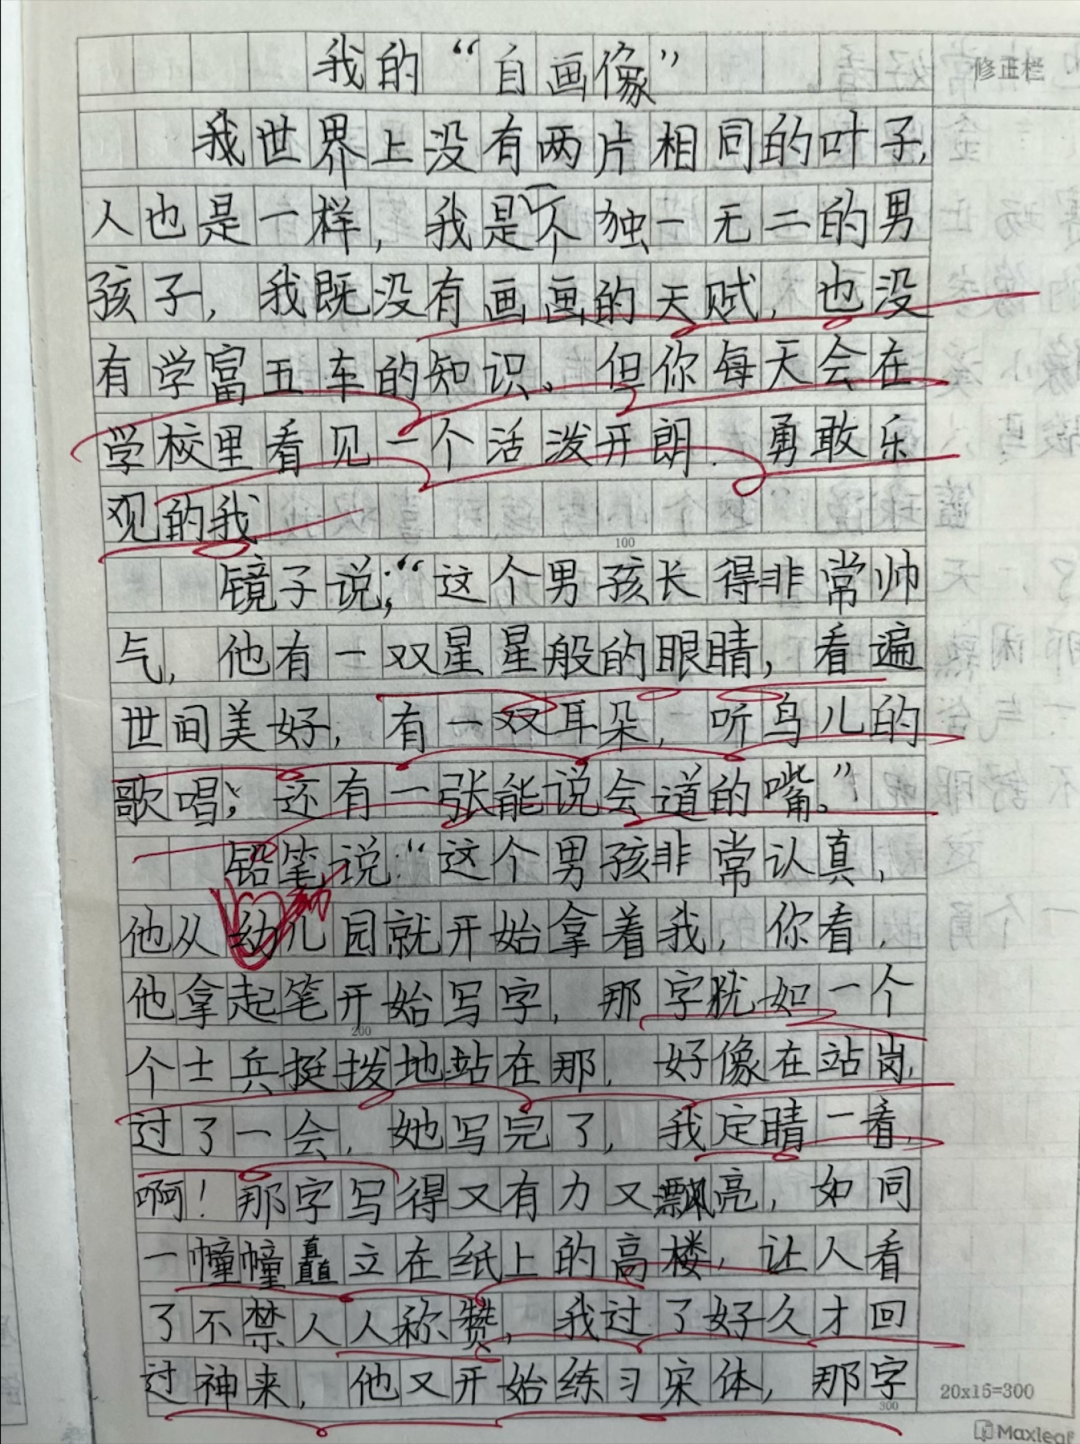 我的“自画像”
修正栏
我世界上没有两片相同的叶子，
人也是一样，我是个独一无二的男
孩子，我既没有画画的天赋，也没
有学富五车的知识。但你每天会在
学校里看见一个活泼开朗、勇敢乐
观的我
100
镜子说：“这个男孩长得非常帅
气，他有一双星星般的眼睛，看遍
世间美好，有一双耳朵，听鸟儿的
歌唱；还有一张能说会道的嘴。”
铅笔说：“这个男孩非常认真，
他从幼儿园就开始拿着我，你看，
他拿起笔开始写字，那字犹如一个
200
个士兵挺拨地站在那，好像在站岗，
过了一会，她写完了，我定睛一看，
啊！那字写得又有力又飘亮，如同
一幢幢矗立在纸上的高楼，让人看
了不禁人人称赞，我过了好久才回
过神来，他又开始练习宋体，那字
300
20x15=300
Maxleaf